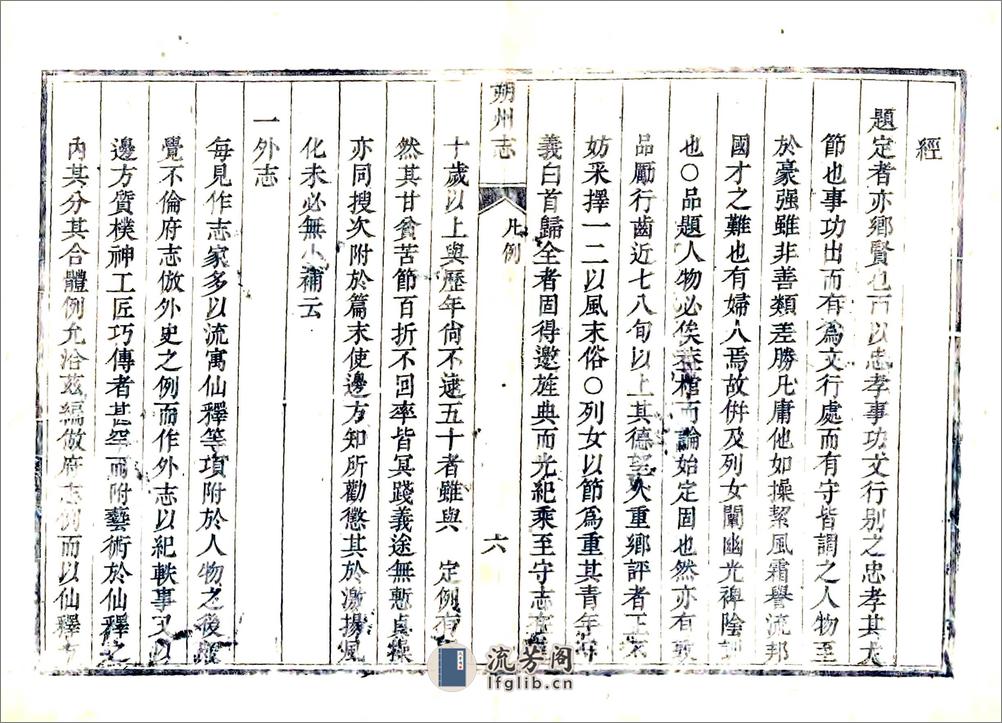 經
題定者亦鄉賢也而以忠孝事功文行別之忠孝其大
節也事功出而有為文行處而有守皆謂之人物至
於豪强雖非善類差勝凡庸他如操絜風霜譽流邦
國才之難也有婦人焉故併及列女闡幽光裨陰
也○品題人物必俟葢棺而論始定固也然亦有敦
品厲行齒近七八旬以上其德望久重鄉評者正不
妨采擇一二以風末俗○列女以節為重其青年
義白首歸全者固得邀旌典而光紀乘至守志在
朔州志
凡例
六
十歲以上與歷年尙不逮五十者雖與 定例有
然其甘貧苦節百折不回率皆冥踐義途無慙貞操
亦同搜次附於篇末使邊方知所勸懲其於激揚風
化未必無小補云
一外志
每見作志家多以流寓仙釋等項附於人物之後
覺不倫府志倣外史之例而作外志以紀軼事又以
邊方質樸神工匠巧傳者甚罕而附藝術於仙釋之
內其分其合體例允洽茲編倣府志例而以仙釋
流芳阁
lfglib.cn